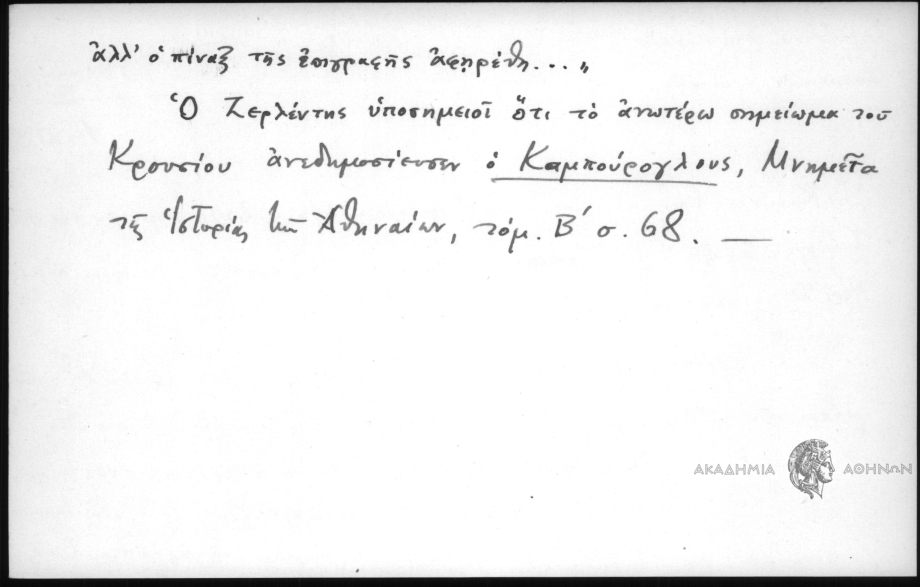 ἀλλ' ὁ πίναξ τῆς ἐπιγραφῆς ἀφῃρέθη...„
Ὁ Ζερλέντης ὑποσημειοῖ ὅτι τὸ ἀνωτέρω σημείωμα τοῦ
Κρουσίου ἀνεδημοσίευσεν ὁ Καμπούρογλους, Μνημεῖα
τῆς Ἱστορίας τῶν Ἀθηναίων, τόμ. Β´ σ. 68. —
ΑΚΑΔΗΜΙΑ ΑΘΗΝΩΝ